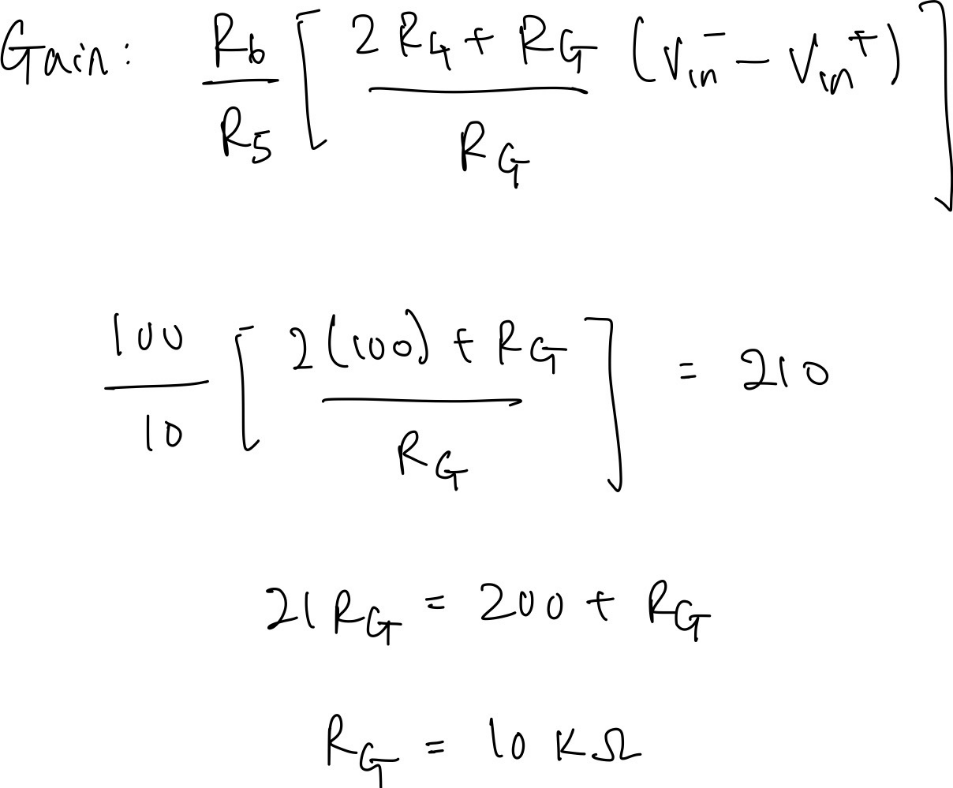 Gain: R6/R5 [ (2R4 + RG)/RG (Vin⁻ - Vin⁺) ]
100/10 [ (2(100) + RG)/RG ] = 210
21RG = 200 + RG
RG = 10 KΩ